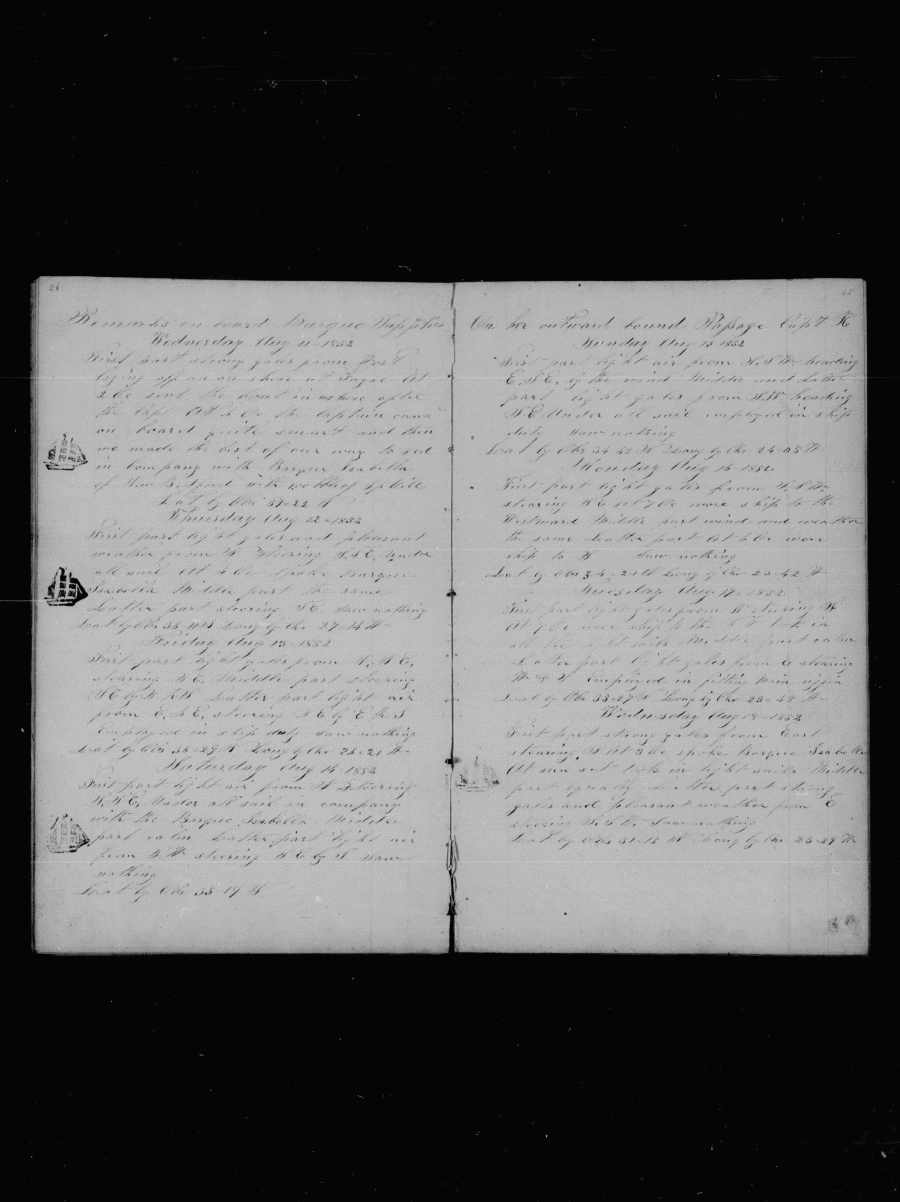 24
Remarks on board Barque Sapphire
Wednesday Aug 11-1852
First part strong gales from West
laying off an on shore at Fayal At
2 Oc sent the boat in ashore after
the Capt At 4 Oc the Captain came
on board quite smart and then
we made the best of our way to sea
in company with Barque Isabella
of New Bedford with
Lat by Obs 37-22 N
Thursday Aug 12-1852
First part light gales and pleasant
weather from W Steering S.S.E. Under
all sail At 4 Oc Spoke Barque
Isabella Middle part the same
Latter part steering S.E. Saw nothing
Lat by Obs 36 Long by Chr 27-14 W
Friday Aug 13-1852
First part light gales from N.N.E.
steering S.E. Middle part steering
Latter part light air
from E.S.E. steering
Employed in ship duty Saw nothing
Lat by Obs 35-39 N Long by Chr 26-21 W
Saturday Aug 14-1852
First part light air from Steering
Under all sail in company
with the Barque Isabella Middle
part calm Latter part light air
from steering Saw
nothing
Lat by Obs 35-19 N
25
On her outward bound Passage Capt
Sunday Aug 15-1852
First part light air from heading
E.S.E. by the wind Middle and Latter
part light gales from heading
Under all sail employed in ship
duty Saw nothing
Lat by Obs 34-42 N Long by Chr 24-05 W
Monday Aug 16-1852
First part light gales from
steering at 7 Oc wore ship to the
Westward Middle part wind and weather
the same Latter part At 4 Oc wore
ship to Saw nothing
Lat by Obs 34-21 N Long by Chr 23-42 W
Tuesday Aug 17-1852
First part light gales from steering
At 7 Oc wore ship to the took in
all the light sails Middle part calm
Latter part light gales from E steering
Employed in fitting main riggin
Lat by Obs 33-27 N Long by Chr 23-48 W
Wednesday Aug 18-1852
First part strong gales from East
steering At 3 Oc spoke Barque Isabella
At sun set took in light sails Middle
part squally Latter part strong
gales and pleasant weather from E
steering Saw nothing
Lat by Obs 31-15 N Long by Chr 23-39 W